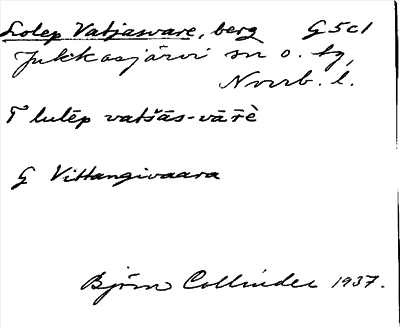 Lolep Vatjasvare, berg G5c1
Jukkasjärvi sn o. tg,
Norrb. l.
T lutēp vatšās-vārè
G Vittangivaara
Björn Collinder 1937.